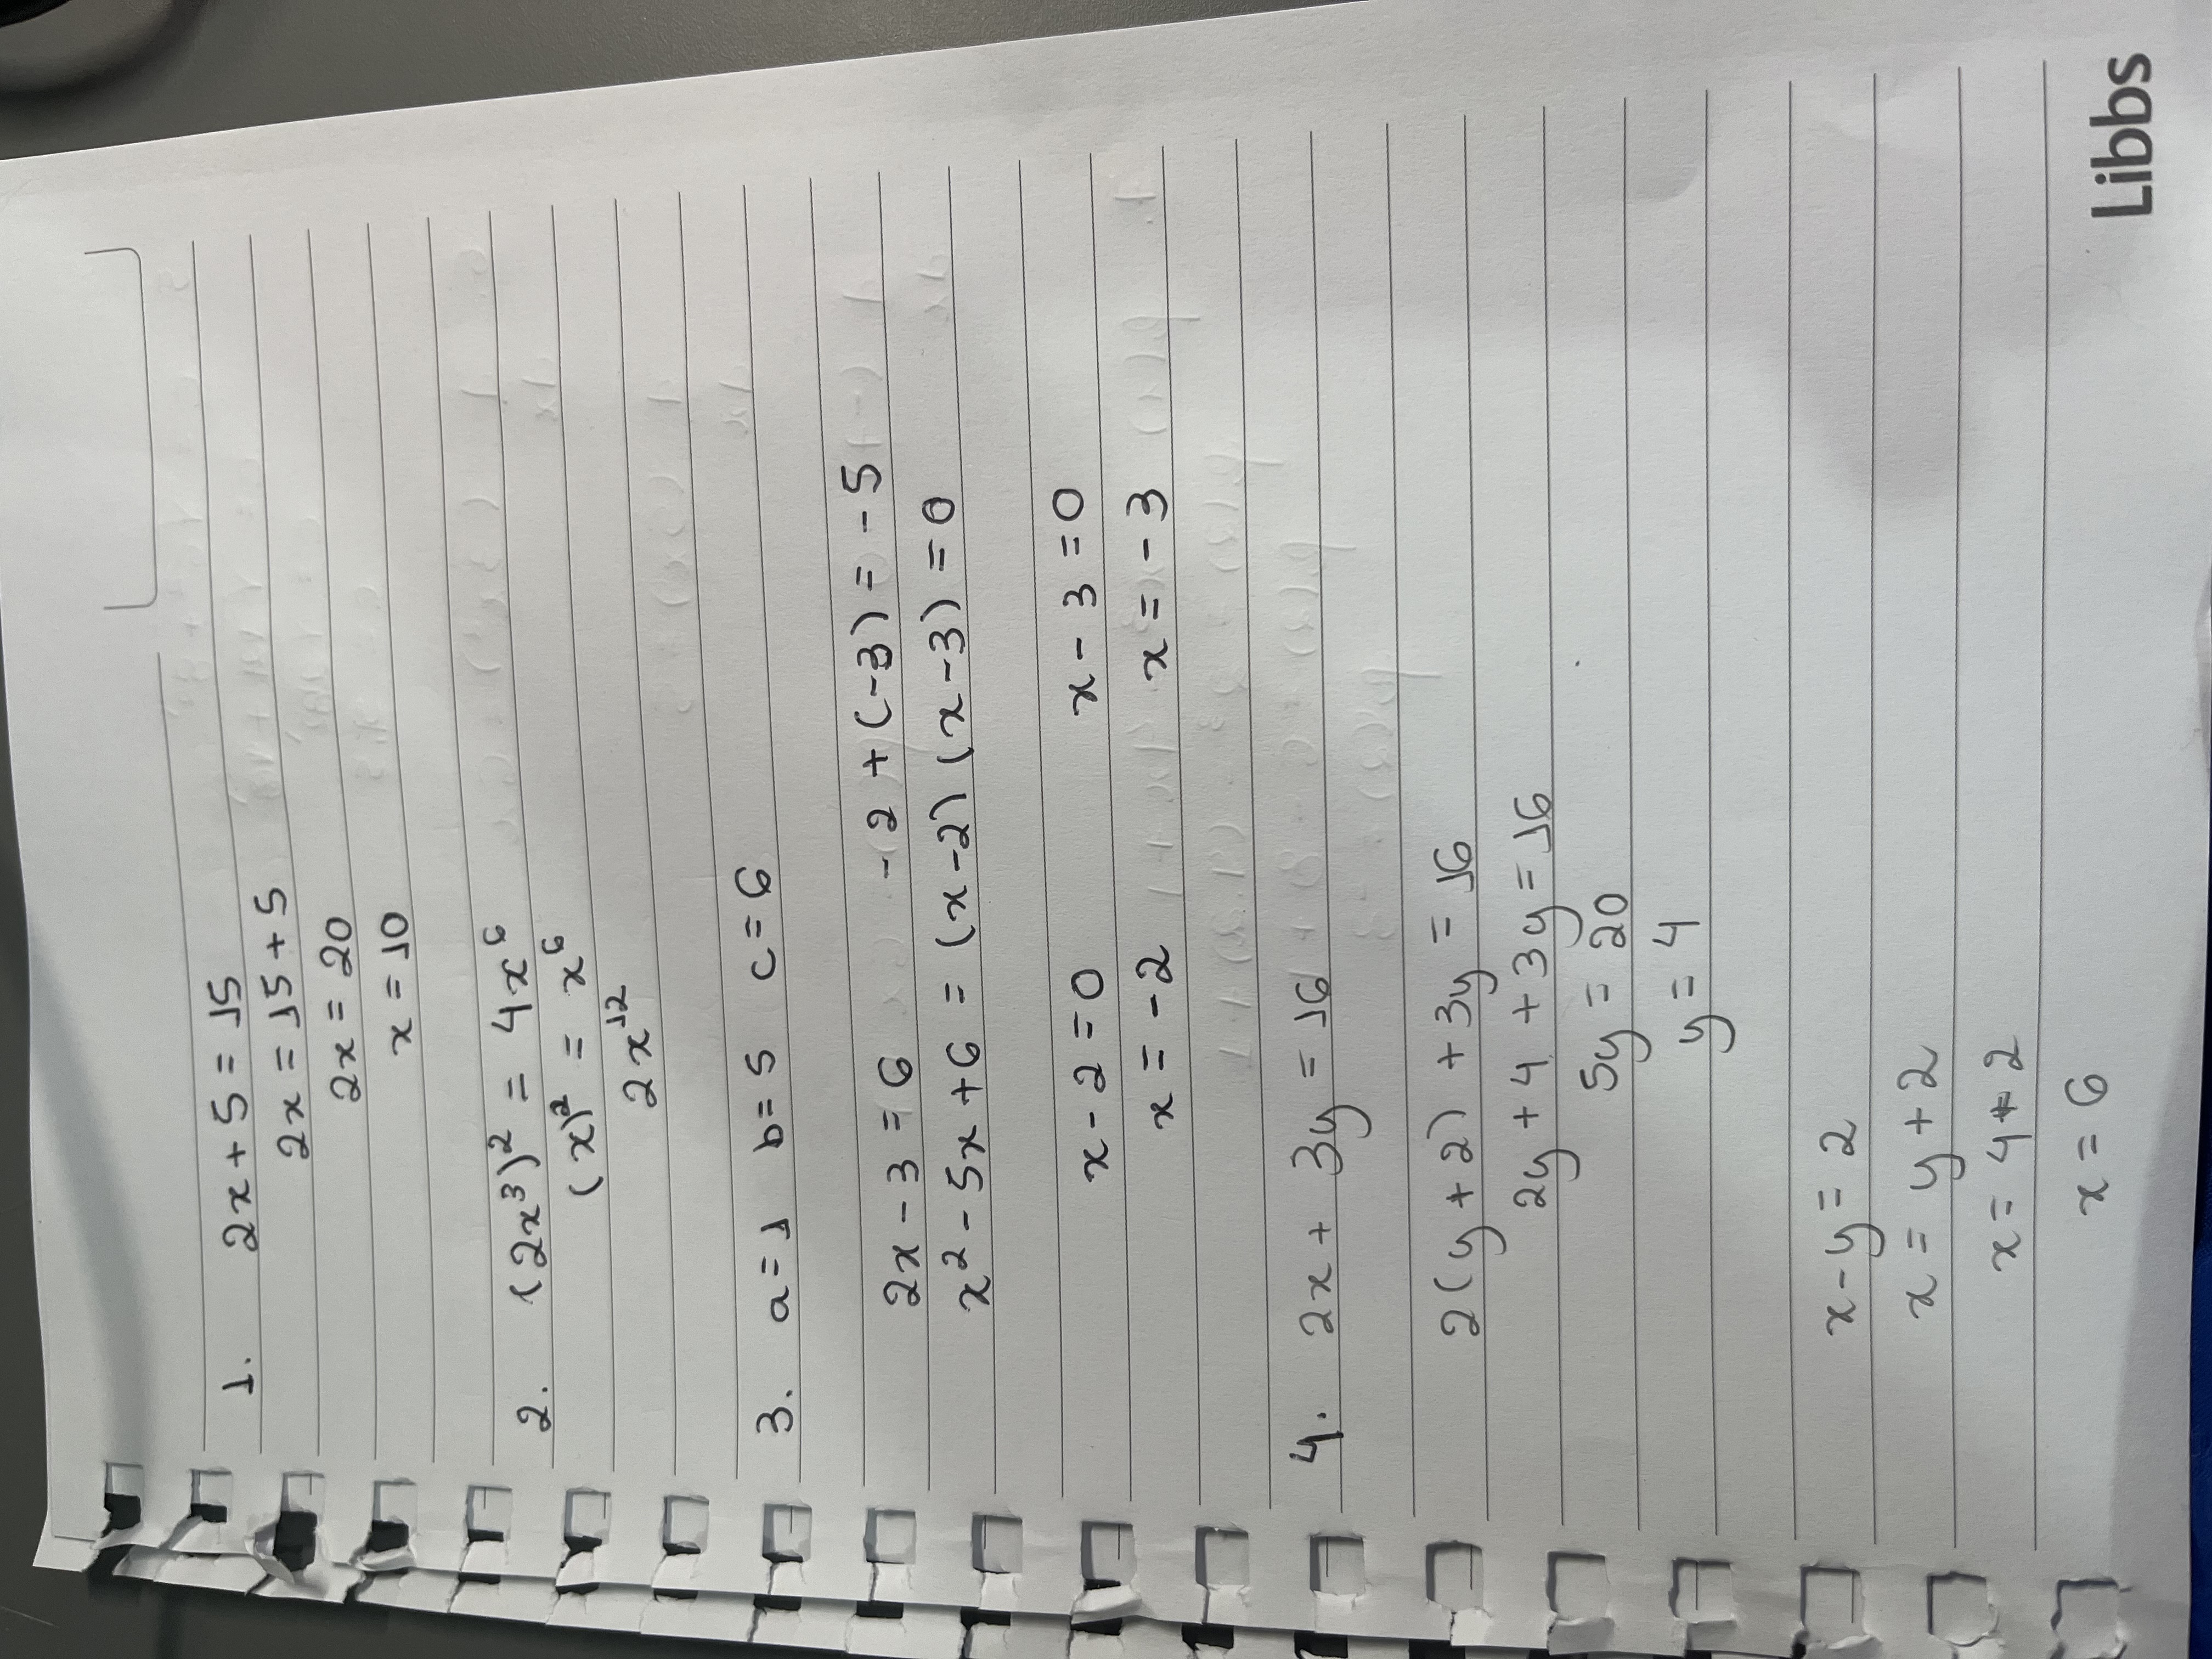 1. 2x + 5 = 15
2x = 15 + 5
2x = 20
x = 10
2. (2x³)² = 4x⁶
(x)² = x⁶
2x¹²
3. a = 1 b = 5 c = 6
2x - 3 = 6 - 2 + (-3) = - 5
x² - 5x + 6 = (x - 2) (x - 3) = 0
x - 2 = 0 x - 3 = 0
x = - 2 x = - 3
4. 2x + 3y = 16
2(y + 2) + 3y = 16
2y + 4 + 3y = 16
5y = 20
y = 4
x - y = 2
x = y + 2
x = 4 + 2
x = 6
Libbs